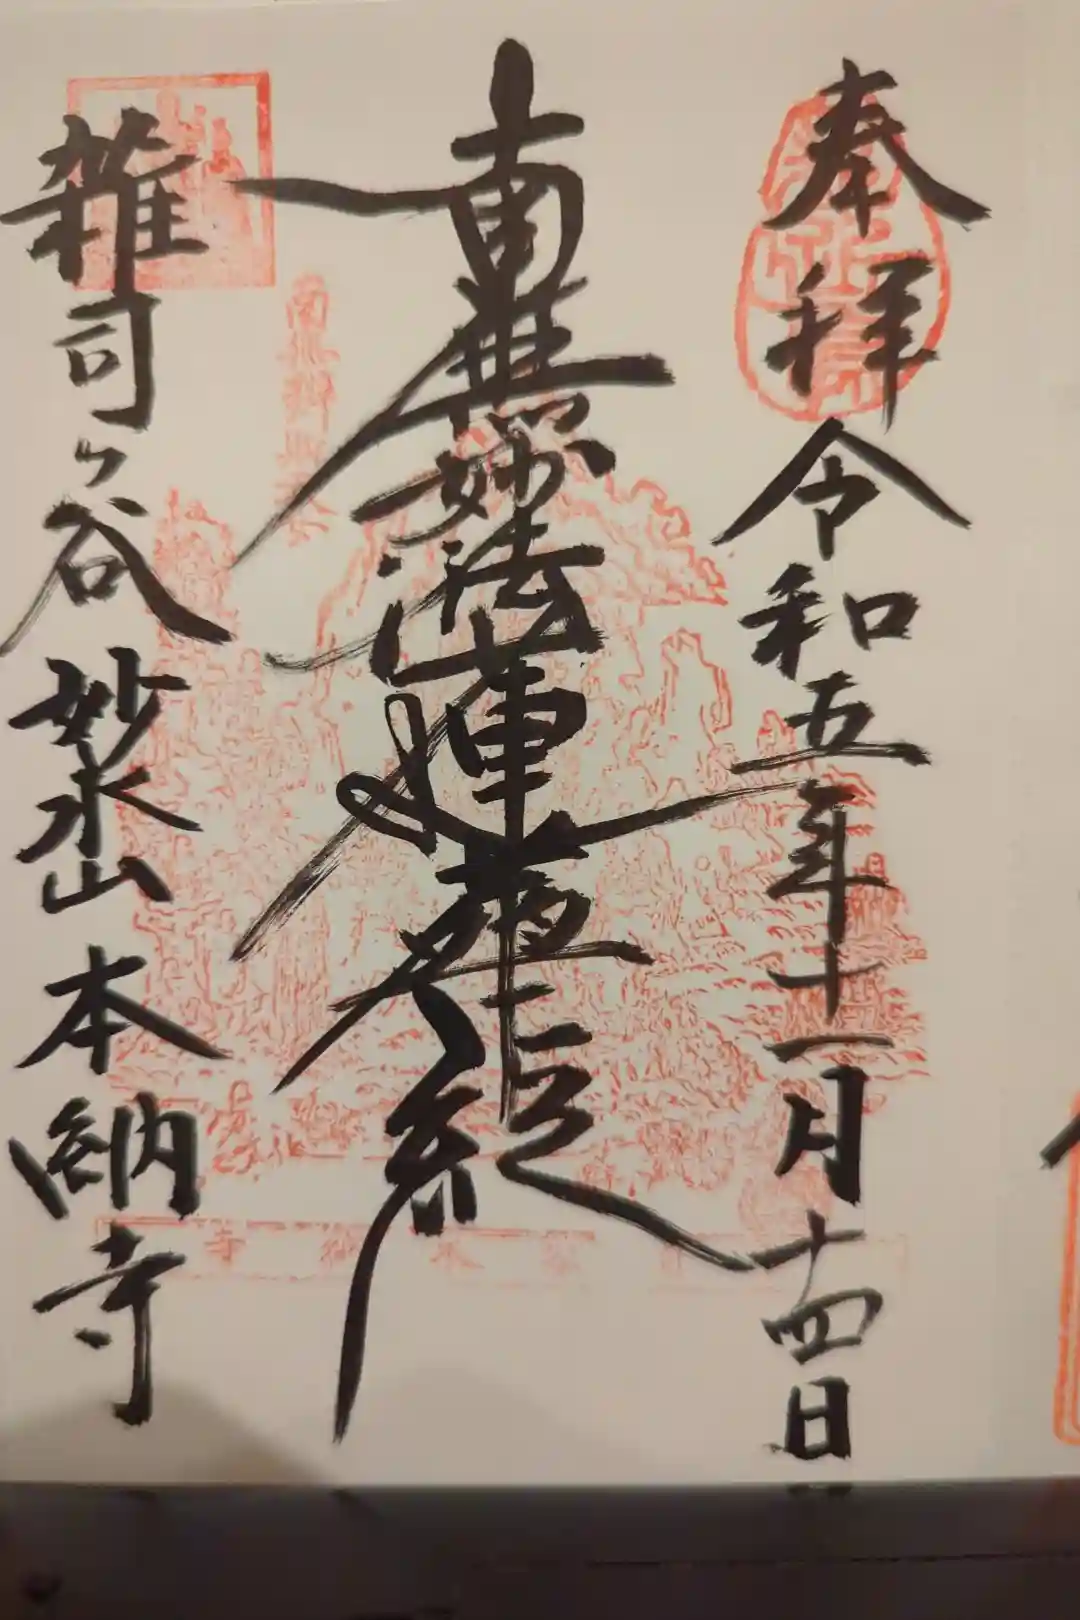 奉拝
令和五年十一月十四日
南無妙法蓮華経
雑司ヶ谷
妙永山
本納寺